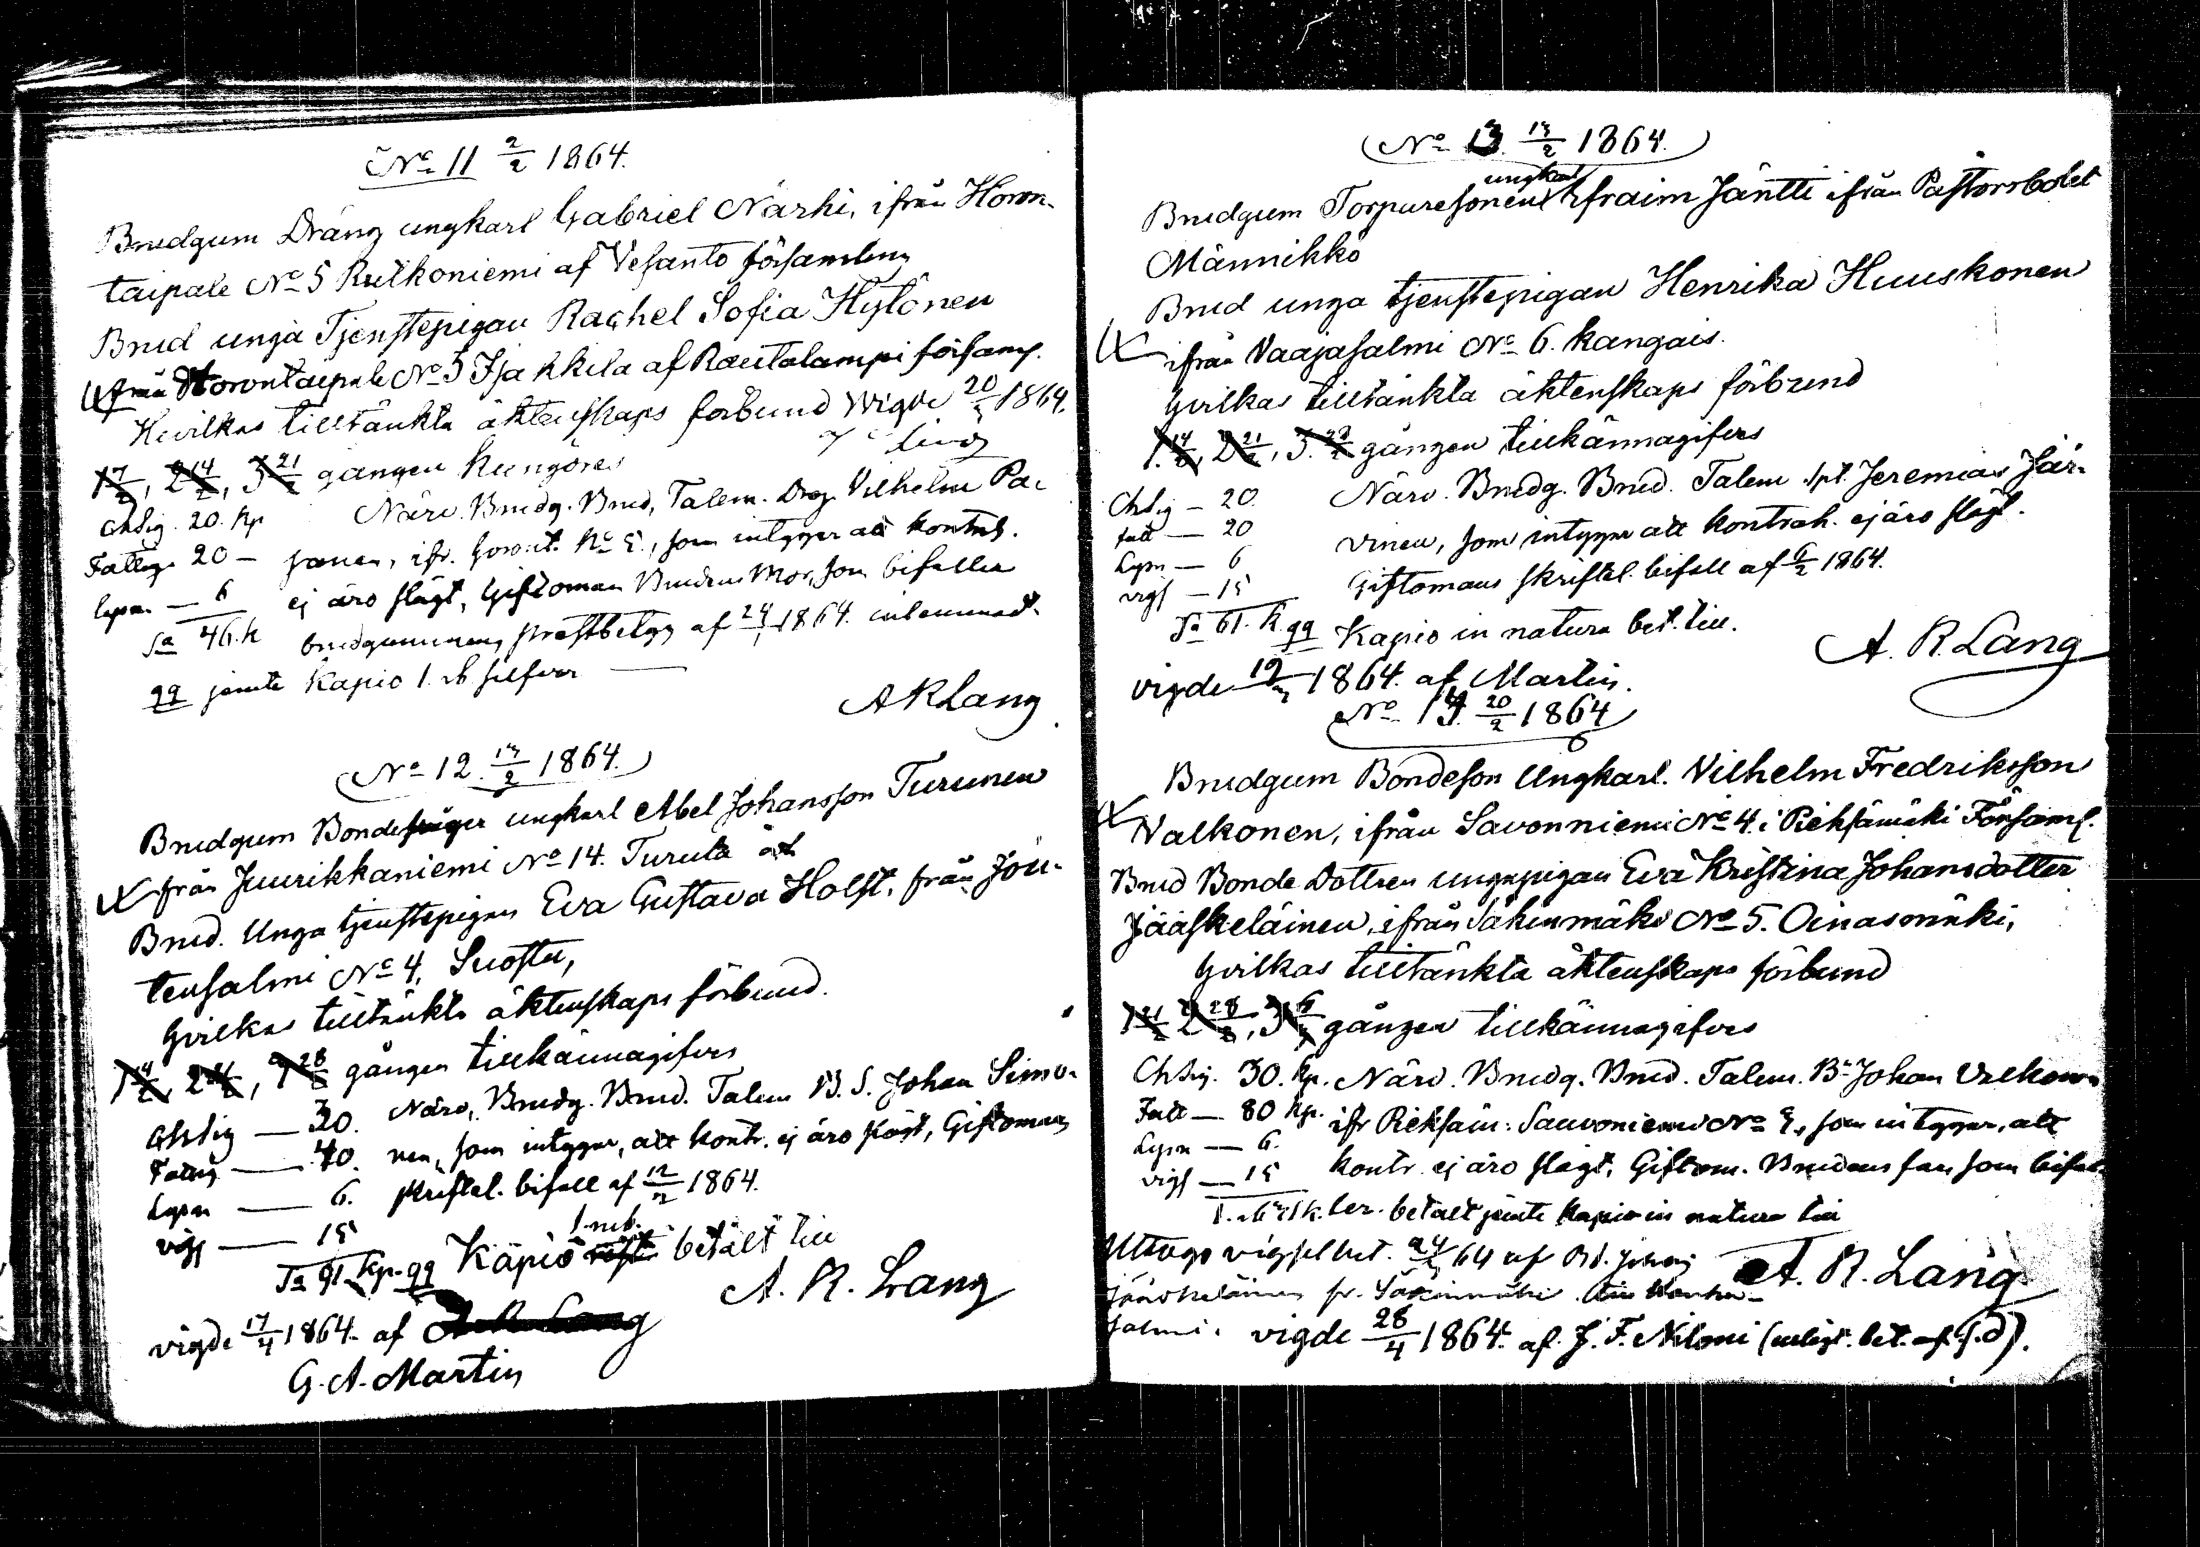 No 11 2/2 1864.
Brudgum Dräng ungkarl Gabriel Närhi, ifrån Horon-
taipale No 5 Rutkoniemi af Vesanto församling
Brud unga Tjenstepigan Rachel Sofia Hytönen
från Horontaipale No 5 af Rautalampi församl.
Hvilkas tilltänkta äktenskaps förbund Wigde 20/3 1864.
1 7/2, 2 14/2, 3 21/2 gången kungöres
Chsig. 20. Kp Närv. Brudg. Brud, Talem. Drg. Vilhelm Pa-
Fattig. 20 — janen, ifr. Horont. No 5., som intygar att kontrah.
Lysn. — 6 ej äro slägt, Giftoman Brudens Mor, som bifaller
Sa 46. k brudgummens prestbetyg af 24/1 1864. inlemnadt.
qq jemte Kapio 1. rb. silfver —
A R Lang
No 12. 13/2 1864.
Brudgum Bonde ungkarl Abel Johansson Turunen
från Juurikkaniemi No 14. Turula
Brud. Unga tjenstepigan Eva Gustava Holst, från Jou-
tensalmi No 4, Suosta,
Hvilkas tilltänkta äktenskaps förbund.
1 14/2, 2 21/2, 3 28/2 gången tillkännagifves
Chsig — 30. Närv. Brudg. Brud. Talem B. S. Johan Simo-
Fattig — 40. nen, som intygar, att kontr. ej äro slägt, Giftomans
Lysn — 6. skriftel. bifall af 12/2 1864.
vigs — 15 1. rub.
Sa 91 Kp. qq Kapio betalt till
A. R. Lang
vigde 17/4 1864. af A. R. Lang
G. A. Martin
No 13. 13/2 1864.
ungkarl
Brudgum Torparesonen Efraim Jäntti ifrån Pastorsbolet
Männikkö
Brud unga tjenstepigan Henrika Huuskonen
ifrån Vaajasalmi No 6. Kangais.
Hvilkas tilltänkta äktenskaps förbund
1. 14/2, 2 21/2, 3. 28/2 gången tillkännagifves
Chsig — 20. Närv. Brudg. Brud. Talem. Spt. Jeremias Jär-
fatt — 20 vinen, som intygar att kontrah. ej äro slägt.
Lysn — 6 Giftomans skriftel. bifall af 6/2 1864.
vigs — 15
Sa 61. K. qq Kapio in natura bet. till.
A. R. Lang
vigde 19/3 1864. af Martin.
No 14. 20/2 1864
Brudgum Bondeson Ungkarl. Vilhelm Fredriksson
Valkonen, ifrån Savonniemi No 4. i Pieksämäki Församl.
Brud Bonde Dottren unga pigan Eva Kristina Johansdotter
Jääskeläinen, ifrån Säkinmäki No 5. Oinasmäki,
Hvilkas tilltänkta äktenskaps förbund
1 21/2 2 28/2, 3 6/3 gången tillkännagifves
Chsig. 30. Kp. Närv. Brudg. Brud. Talem. Bn Johan Valkonen
Fatt — 80 Kp. ifr Pieksäm: Sauvoniemi No, som intygar, att
Lysn — 6. kontr. ej äro slägt, Giftom. Brudens far som bifal.
vigs — 15
betalt jemte Kapio in natura till
Uttogs 24/4 64 af Bd. Johan
A. R. Lang
Jääskeläinen fr. Säkinmäki till Kanka-
salmi. vigde 28/4 1864. af J. F. Niloni